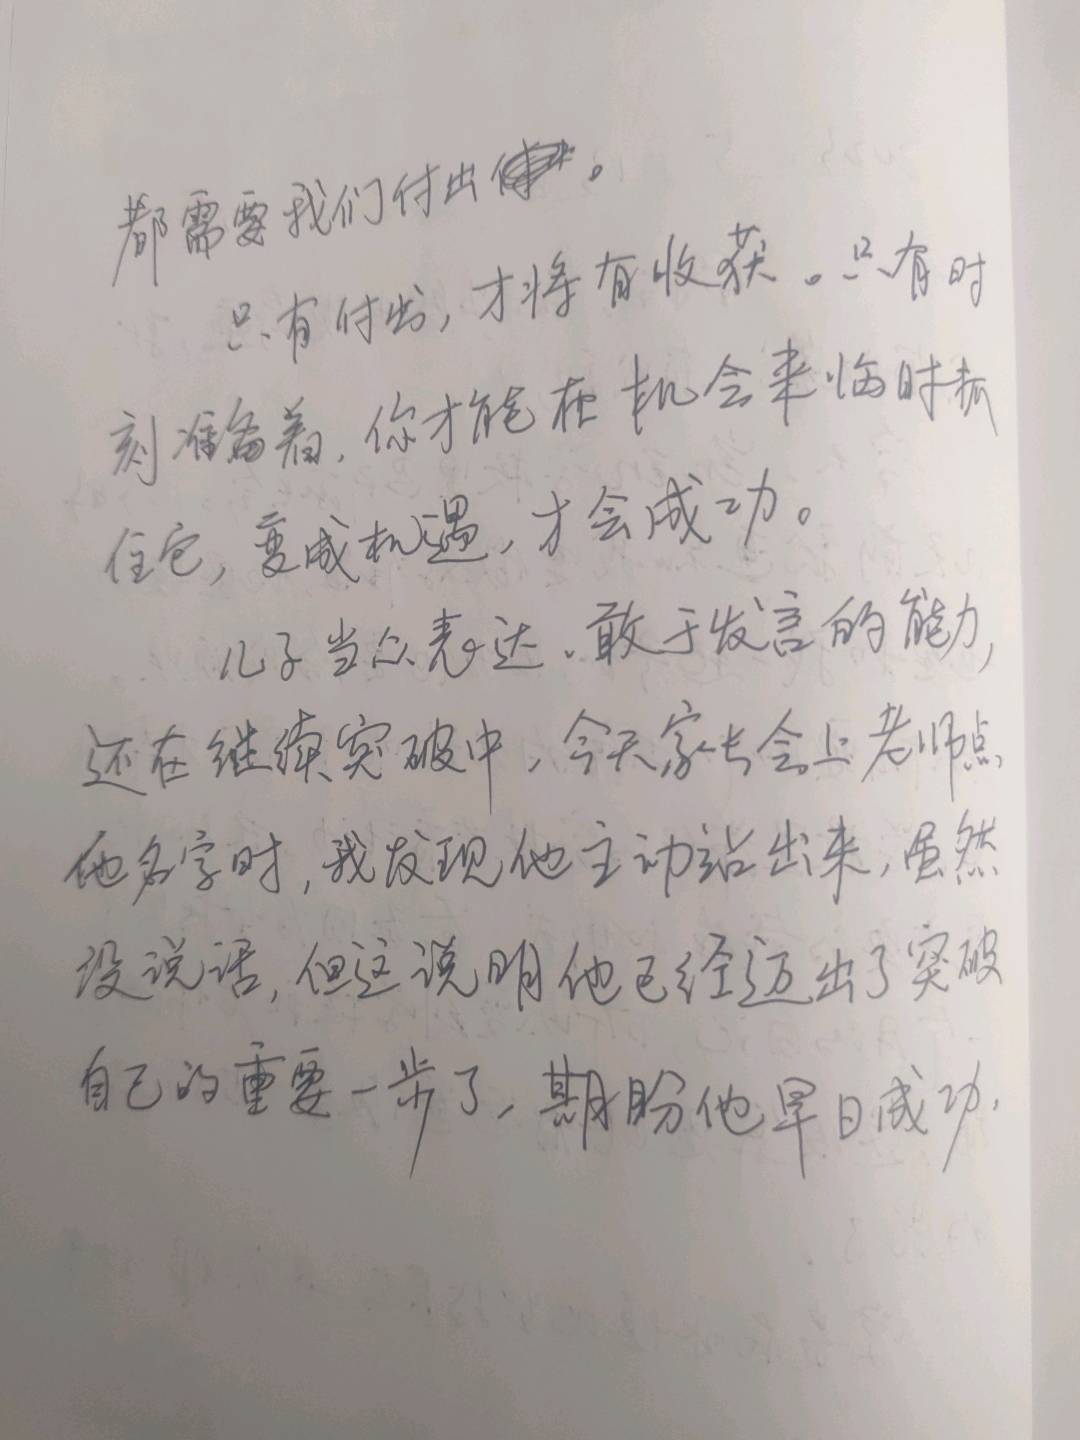 都需要我们付出。
只有付出，才将有收获。只有时
刻准备着，你才能在机会来临时抓
住它，变成机遇，才会成功。
儿子当众表达、敢于发言的能力，
还在继续突破中，今天家长会上老师点
他名字时，我发现他主动站出来，虽然
没说话，但这说明他已经迈出了突破
自己的重要一步了，期盼他早日成功，